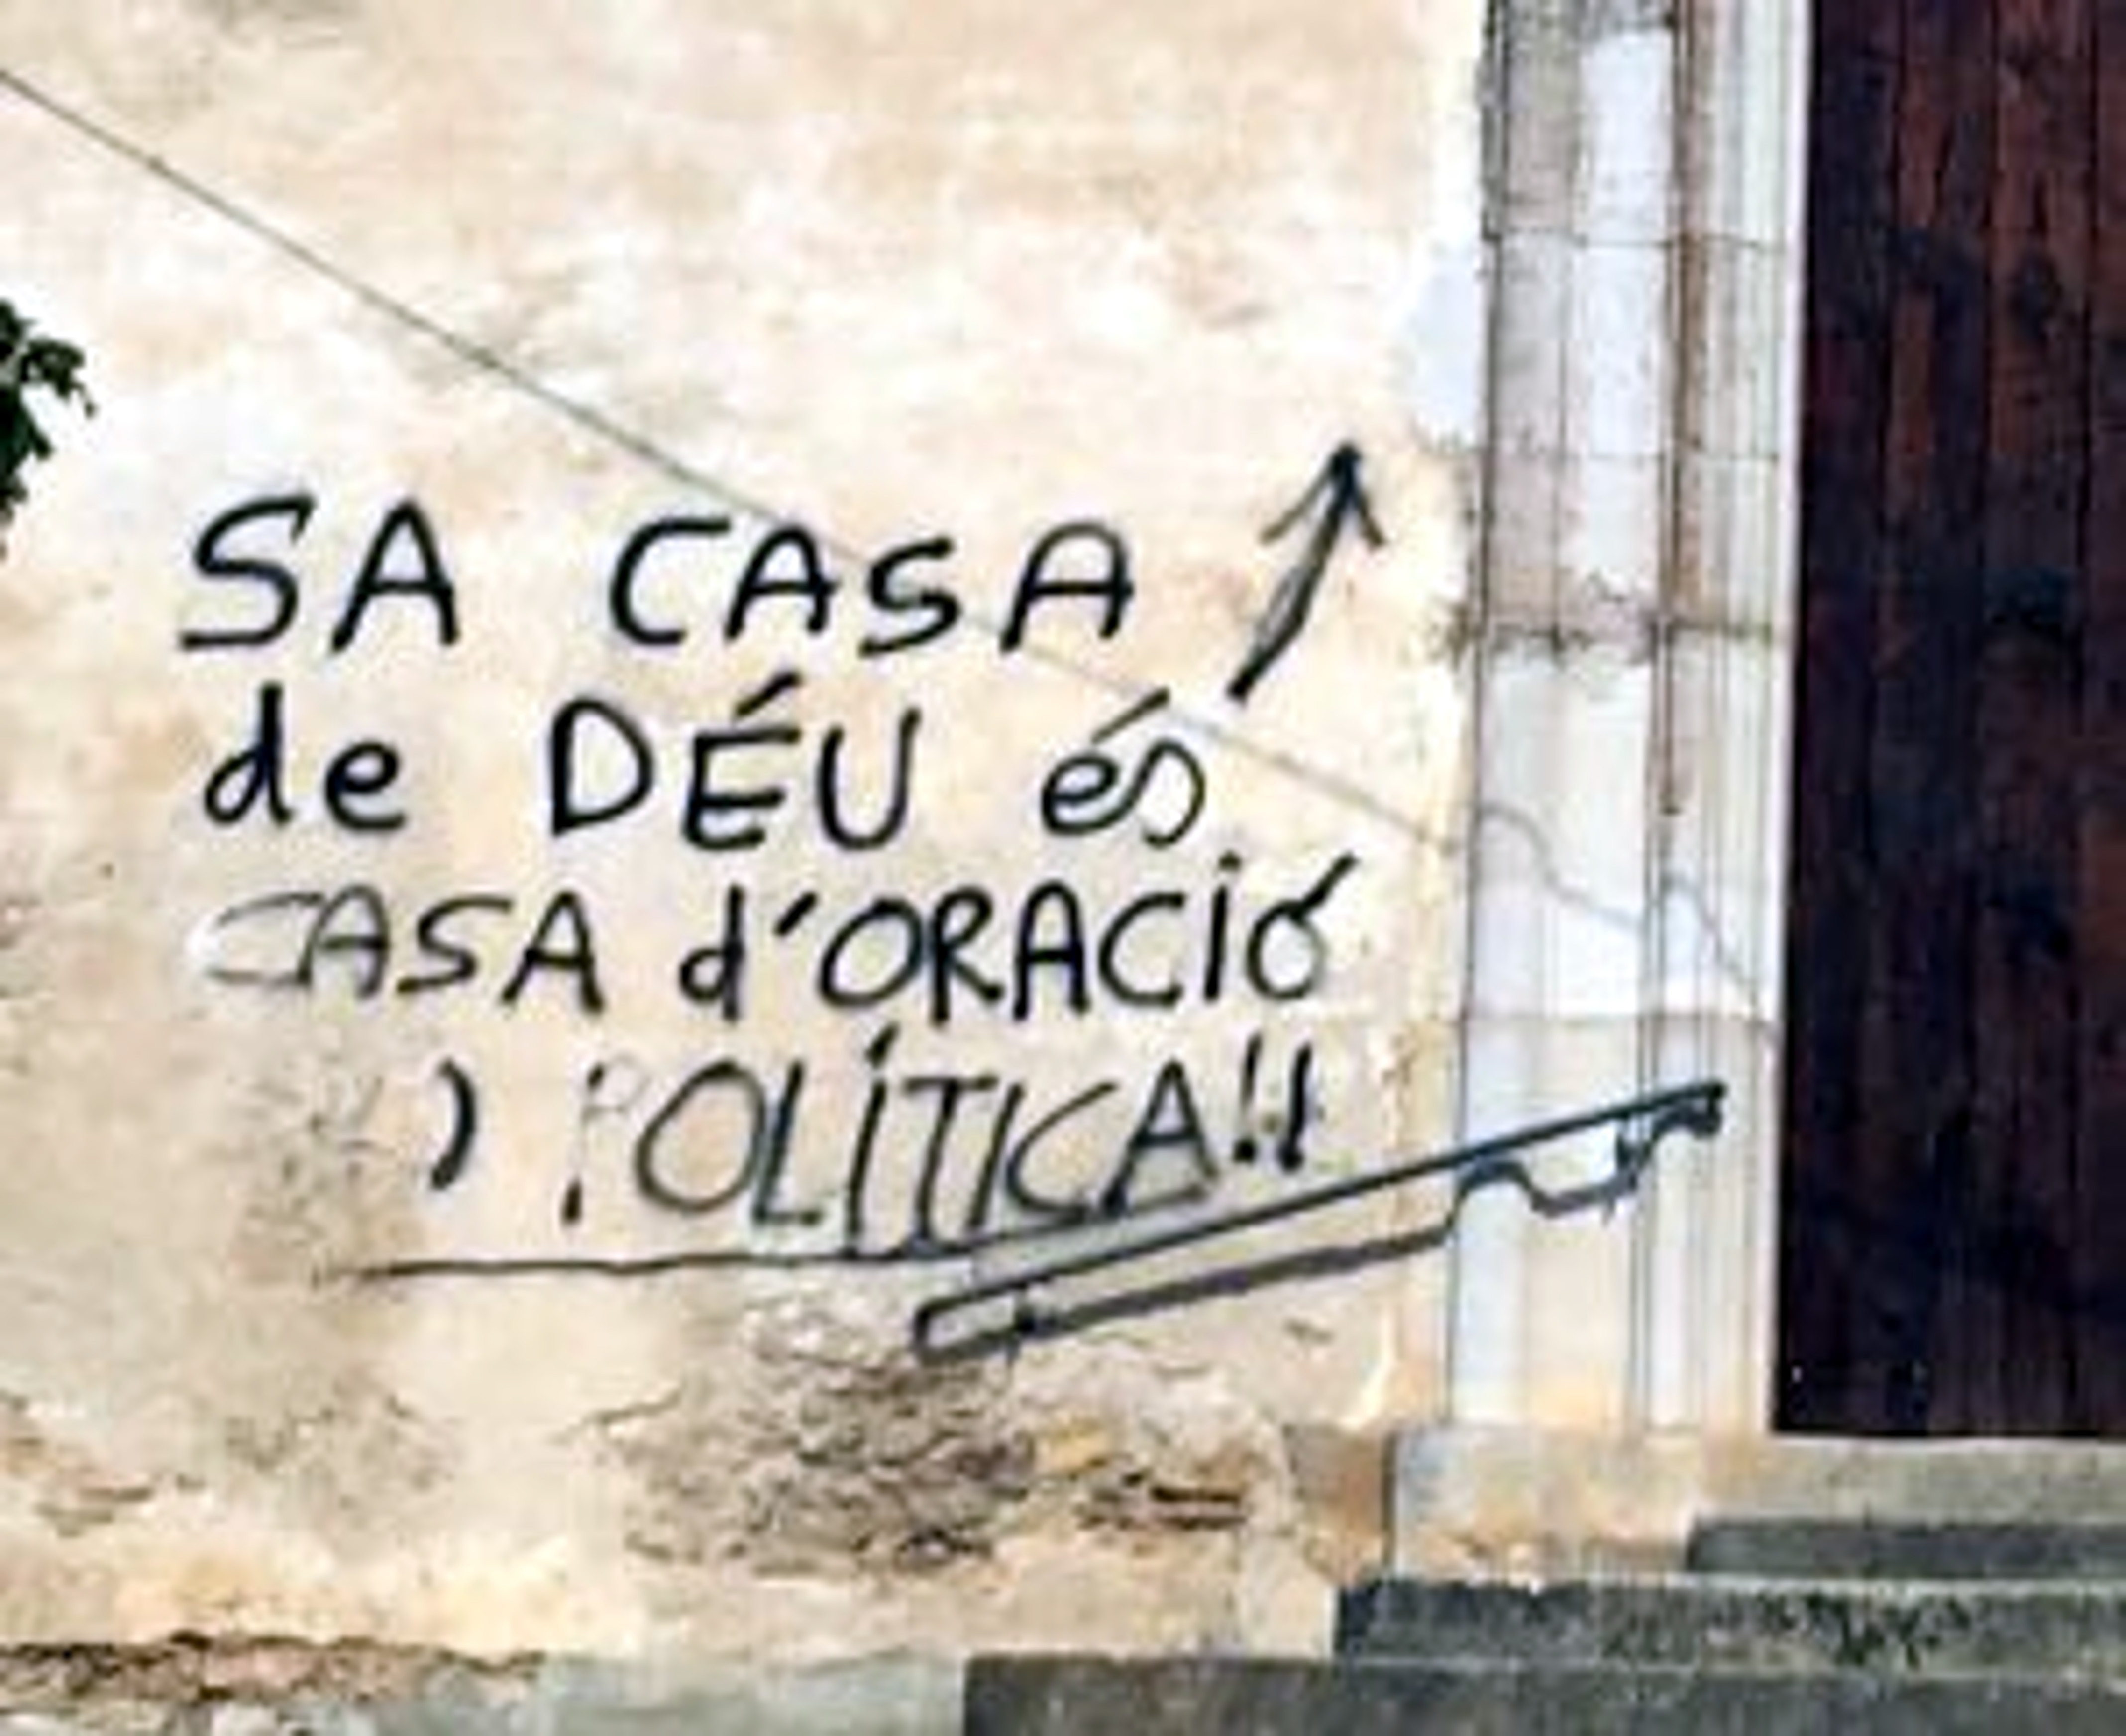 SA CASA
de DÉU és
CASA d'ORACIÓ
) POLÍTICA!!